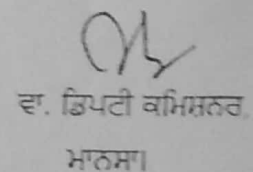 ਵਾ. ਡਿਪਟੀ ਕਮਿਸ਼ਨਰ,
ਮਾਨਸਾ।